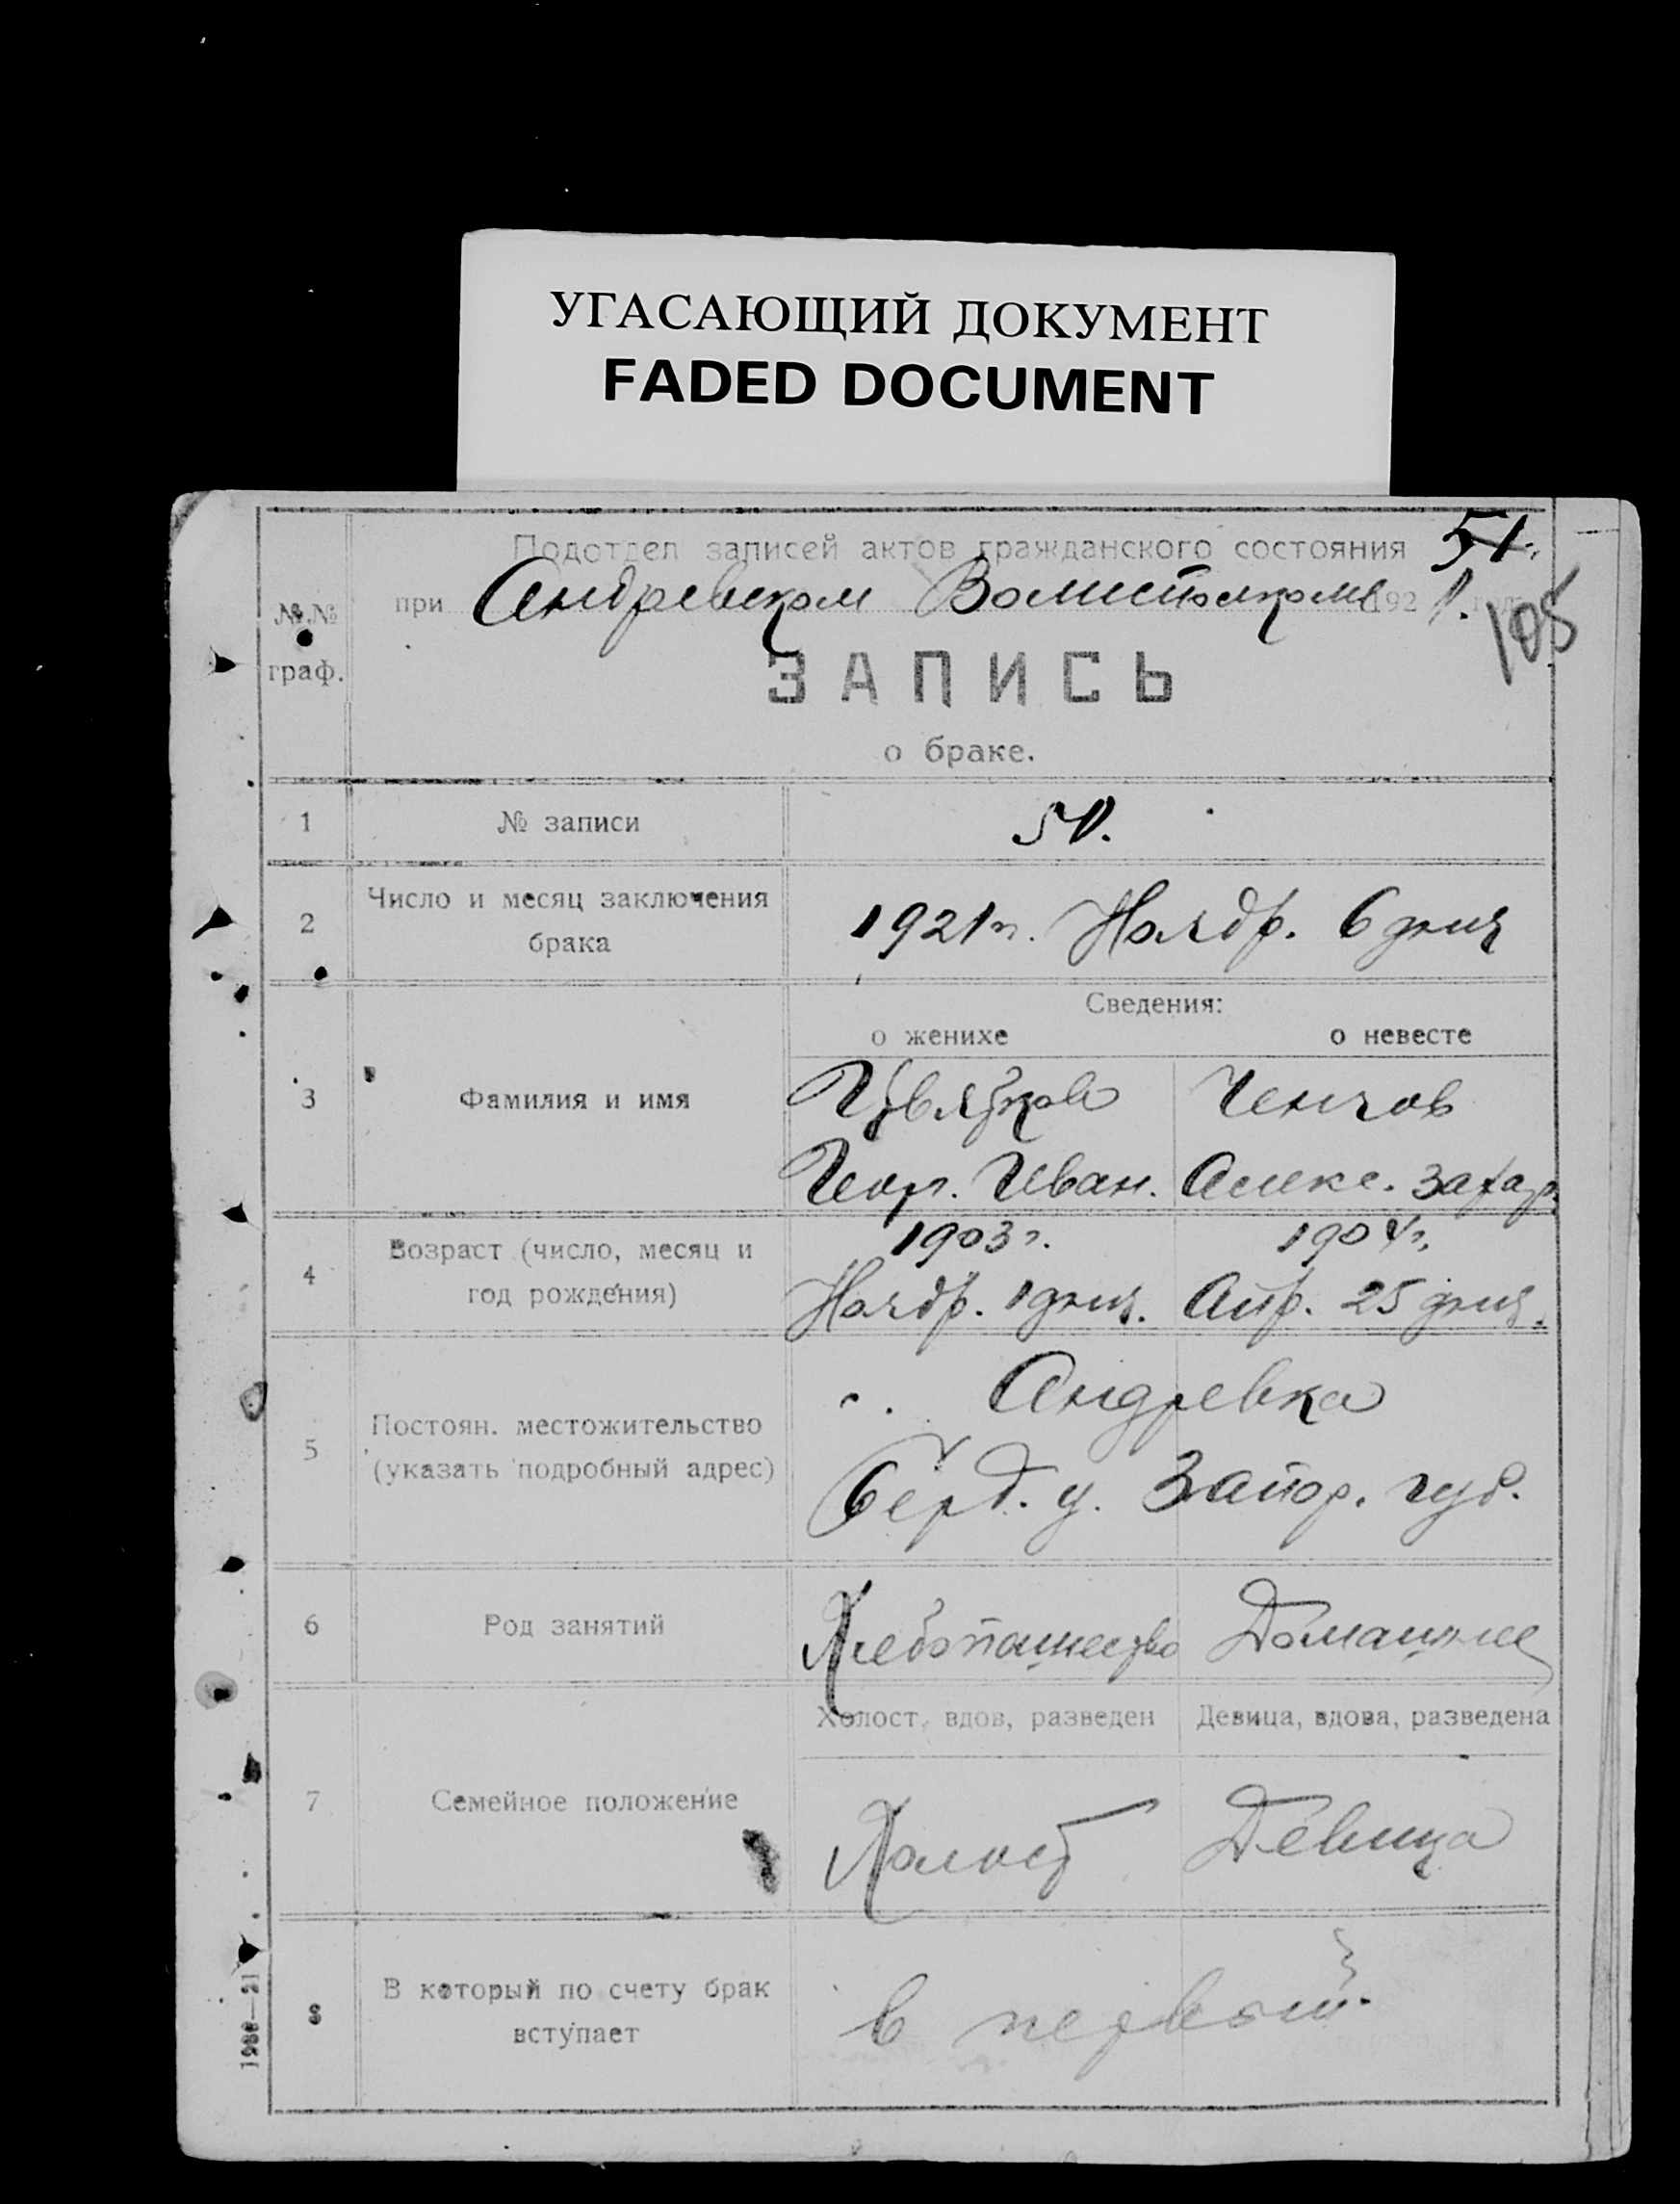 УГАСАЮЩИЙ ДОКУМЕНТ
FADED DOCUMENT
51.
Подотдел записей актов гражданского состояния
при Андревском Волисполкоме 1921. год.
105
№№
граф.
ЗАПИСЬ
о браке.
1 № записи 51.
2 Число и месяц заключения
брака
1921 г. Ноядр. 6 дния
Сведения:
о женихе о невесте
3 Фамилия и имя
Ченгов
Геор. Иван. Алекс. Захар.
4 Возраст (число, месяц и
год рождения)
1903 г. 1904 г.
Ноядр. 1 дния. Апр. 25 дния.
5 Постоян. местожительство
(указать подробный адрес)
с. Андревка
Берд. у. Запор. губ.
6 Род занятий
Хлебопашество Домашнее
Холост, вдов, разведен Девица, вдова, разведена
7 Семейное положение
Холост Девица
8 В который по счету брак
вступает
в первый.
1980—21